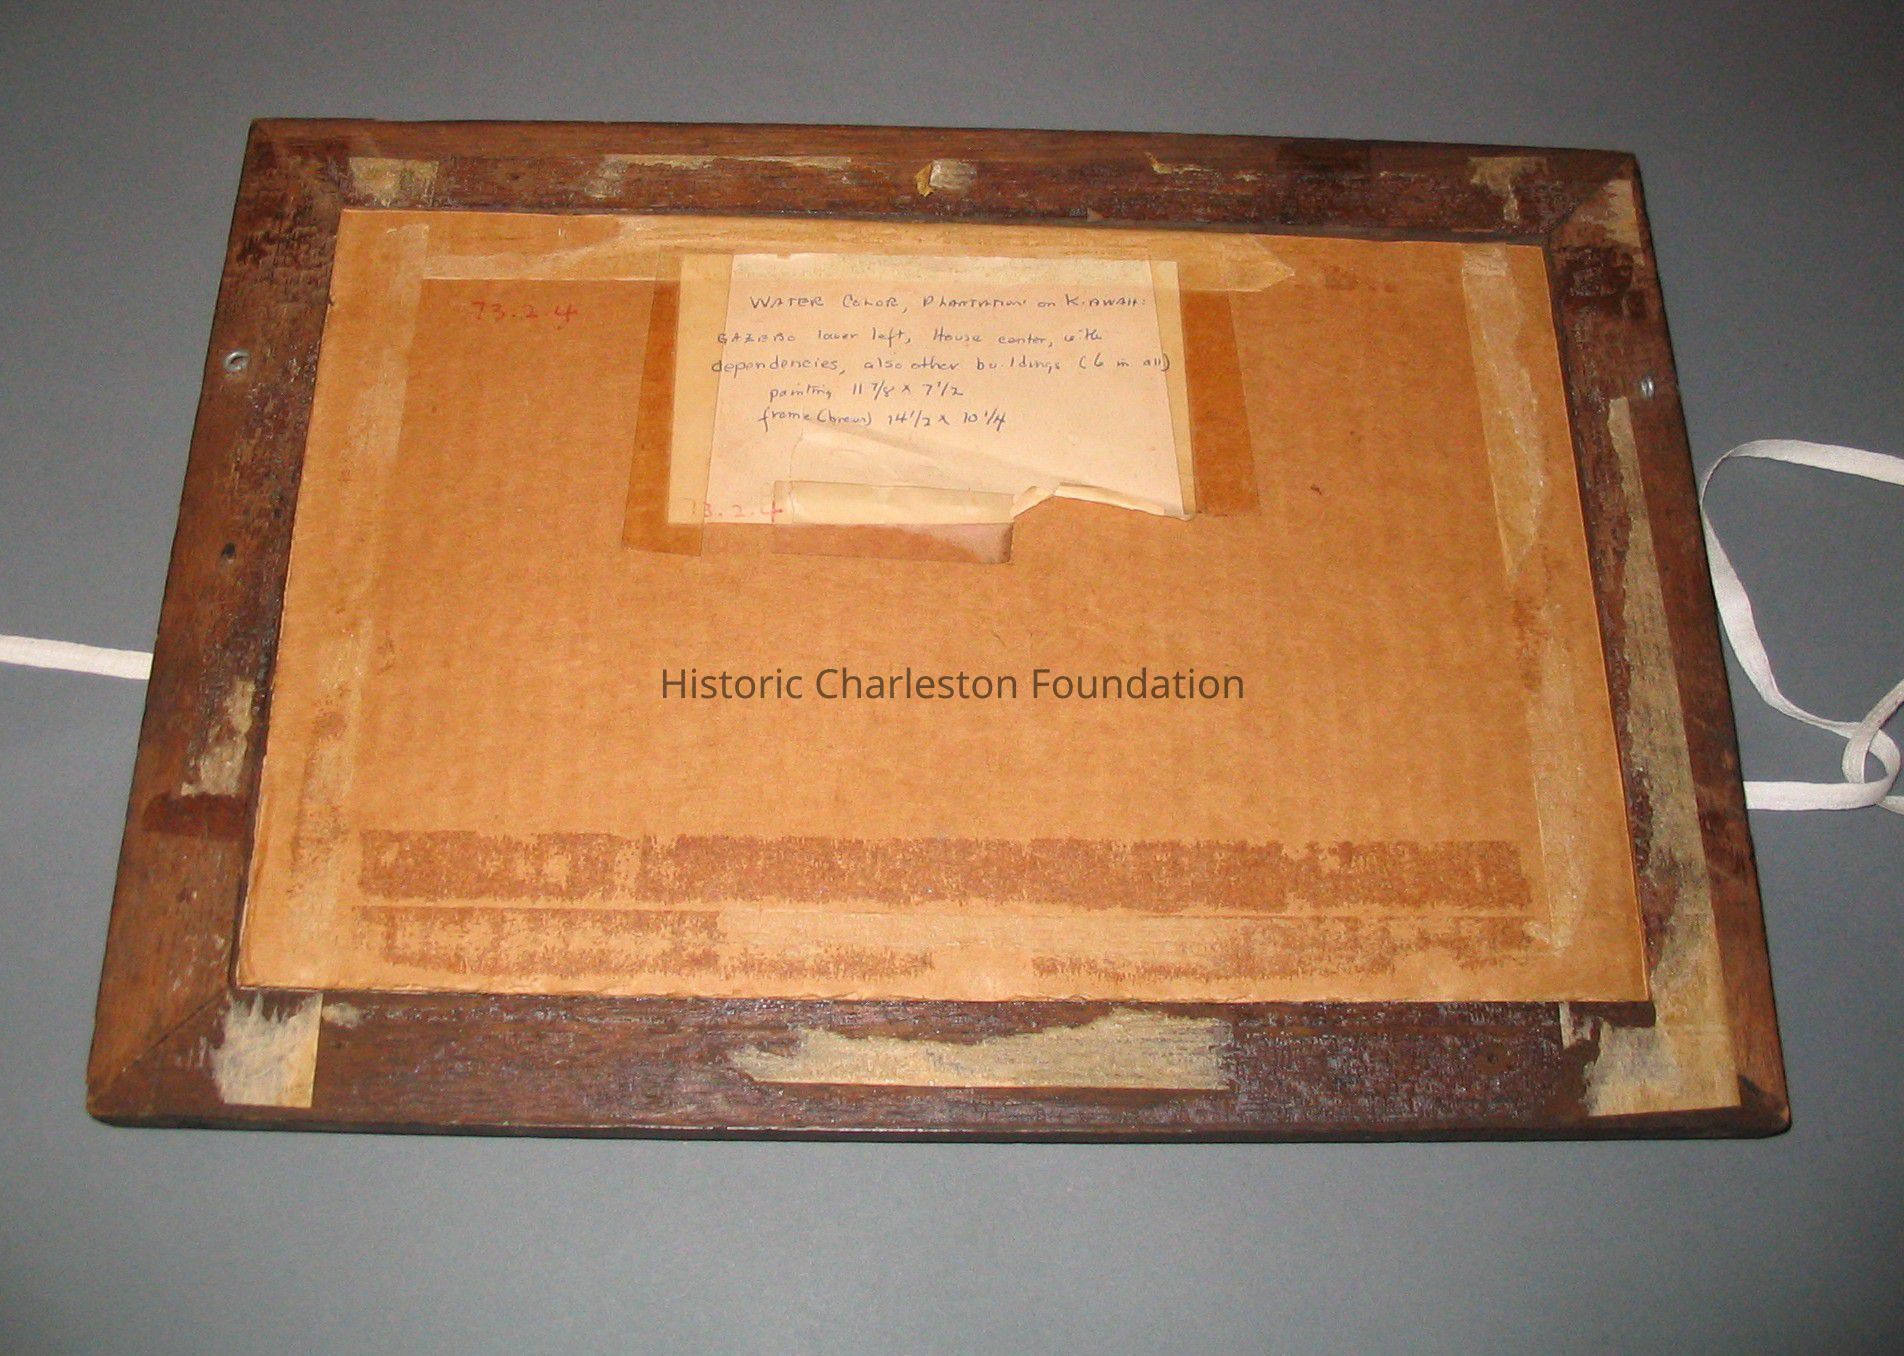 73.2.4
WATER COLOR, PLANTATION on KIAWAH:
GAZEBO lower left, House center, with
dependencies, also other buildings (6 in all)
painting 11 7/8 x 7 1/2
frame (brown) 14 1/2 x 10 1/4
73.2.4
Historic Charleston Foundation